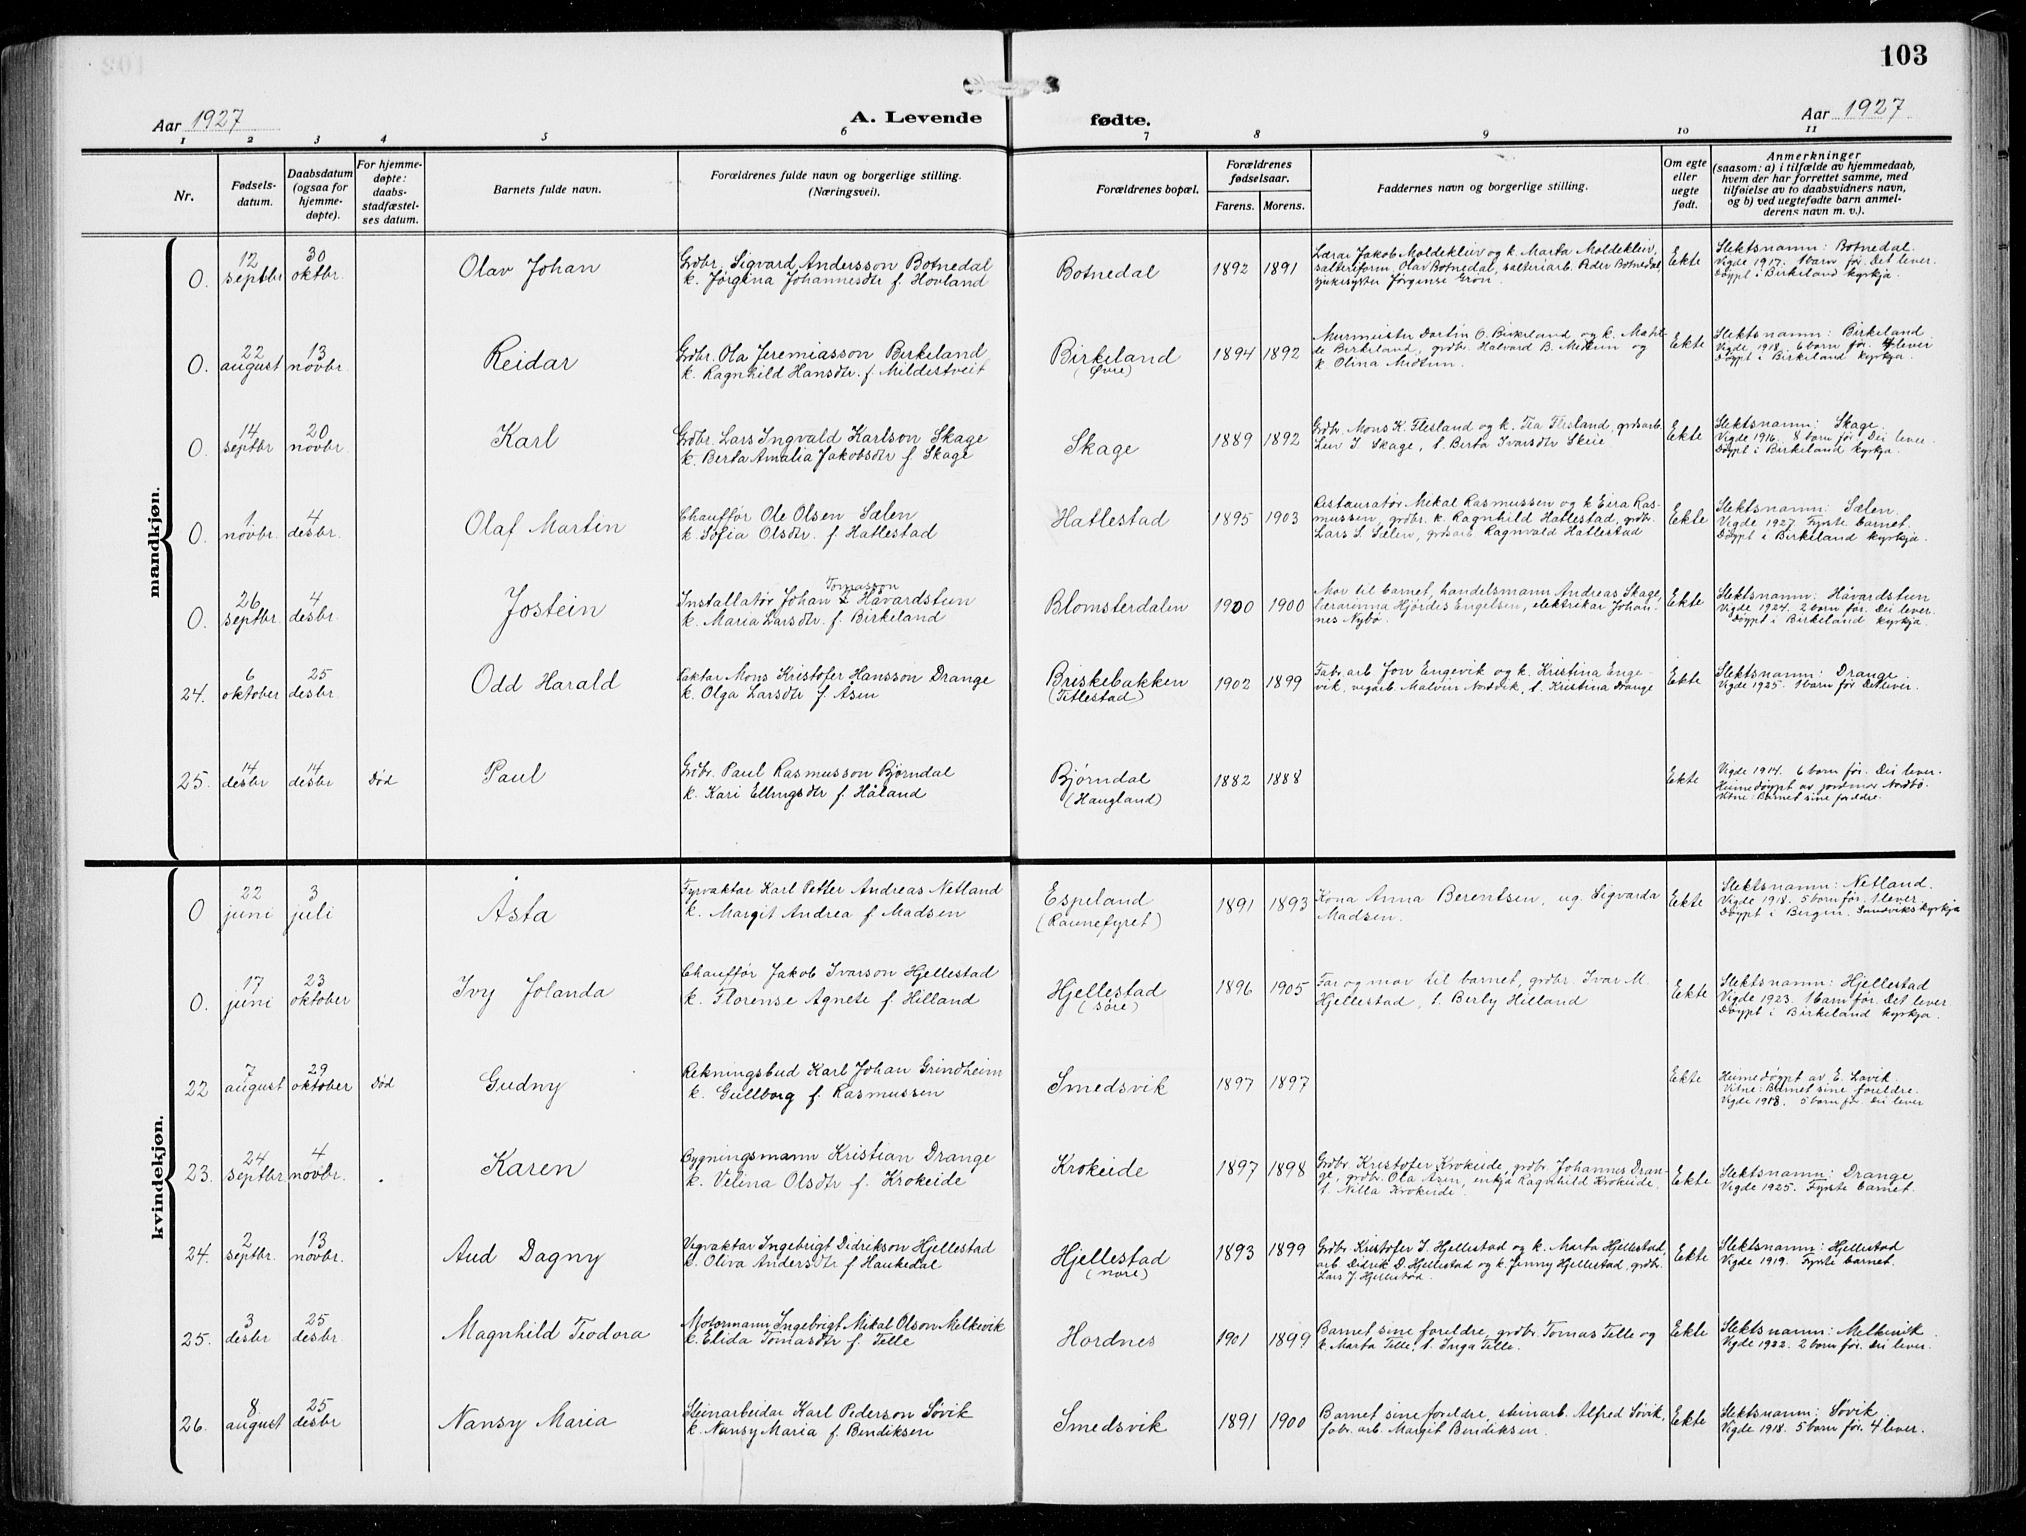 103
Aar 1927
A. Levende fødte.
Aar 1927
1 2 3 4 5 6 7 8 9 10 11
Nr.
Fødsels-
datum.
Daabsdatum
(ogsaa for
hjemme-
døpte).
For hjemme-
døpte:
daabs-
stadfæstel-
ses datum.
Barnets fulde navn.
Forældrenes fulde navn og borgerlige stilling.
(Næringsvei).
Forældrenes bopæl.
Forældrenes
fødselsaar.
Farens. Morens.
Faddernes navn og borgerlige stilling.
Om egte
eller
uegte
født.
Anmerkninger
(saasom: a) i tilfælde av hjemmedaab,
hvem der har forrettet samme, med
tilføielse av to daabsvidners navn,
og b) ved uegtefødte barn anmel-
derens navn m. v.).
mandkjøn.
0. 12 septbr. 30 oktbr. Olav Johan
Grdbr. Sigvard Andersson Botnedal
k. Jørgina Johannesdtr f. Hovland
Botnedal 1892 1891
Lærar Jakob Moldekleiv og k. Marta Moldekleiv,
Olav Botnedal, Peder Botnedal
sjukesyster Jørgense Grøn.
Ekte
Slektsnamn: Botnedal.
Vigde 1917. 1 barn før. Det lever.
Døypt i Birkeland kyrkja.
0. 22 august 13 novbr. Reidar
Grdbr. Ola Jeremiasson Birkeland
k. Ragnhild Hansdtr. f. Mildestveit
Birkeland
(Øvre)
1894 1892
Murmeister O. Birkeland og k. Matil-
de Birkeland, grdbr. Halvard B. Midtun og
k. Olina Midtun.
Ekte
Slektsnamn: Birkeland
Vigde 1918. 6 barn før. 4 lever
Døypt i Birkeland kyrkja.
0. 14 septbr 20 novbr. Karl
Grdbr. Lars Ingvald Karlson Skage
k. Berta Amalia Jakobsdtr f. Skage
Skage 1889 1892
Grdbr. Mons K. Flesland og k. Tea Flesland, grdsarb.
Leiv I. Skage, t. Berta Ivarsdtr Skeie
Ekte
Slektsnamn: Skage.
Vigde 1916. 8 barn før. Dei lever.
Døypt i Birkeland kyrkja.
0. 1 novbr. 4 desbr. Olaf Martin
Chauffør Ole Olsen Sælen
k. Sofia Olsdtr. f. Hatlestad
Hatlestad 1895 1903
Restauratør Mikal Rasmussen og k Eira Ras-
mussen, grdbr. k. Ragnhild Hatlestad, grdbr.
Lars S. Sælen, grdsarb Ragnvald Hatlestad
Ekte
Slektsnamn: Sælen.
Vigde 1927. Fyrste barnet.
Døypt i Birkeland kyrkja.
0. 26 septbr. 4 desbr. Jostein
Tomasson
Installatør Johan Håvardstun
k. Maria Larsdtr. f. Birkeland
Blomsterdalen 1900 1900
Mor til barnet, handelsmann Andreas Skage,
lærarinna Hjørdes Engelsen, elektrikar Johan-
nes Nybø.
Ekte
Slektsnamn: Håvardstun
Vigde 1924. 2 barn før. Dei lever.
Døypt i Birkeland kyrkja.
24. 6 oktober 25 desbr. Odd Harald
Faktor Mons Kristofer Hansson Drange
k. Olga Larsdtr f. Åsen
Briskebakken
(Titlestad)
1902 1899
Fabr. arb Jon Engevik og k. Kristina Enge-
vik, vegarb. Malvin Nordvik, t. Kristina Drange
Ekte
Slektsnamn: Drange.
Vigde 1925. 1 barn før Det lever.
25. 14 desbr 14 desbr Død Paul
Grdbr. Paul Rasmusson Bjørndal
k. Kari Ellingsdtr f. Håland
Bjørndal
(Haugland)
1882 1888
Ekte
Vigde 1914. 6 barn før. Dei lever.
Heimedøypt av jordmor Nordbø.
Vitne: Barnet sine foreldre.
kvindekjøn.
0 22 juni 3 juli Åsta
Fyrvaktar Karl Petter Andreas Netland
k. Margit Andrea f Madsen
Espeland
(Raunefyret)
1891 1893
Kona Anna Berentsen, ug. Sigvarda
Madsen.
Ekte
Slektsnamn: Netland.
Vigde 1918. 5 barn før. 1 lever
Døypt i Bergen. Sandvikskyrkja
0. 17 juni 23 oktober Ivy Jolanda
Chauffør Jakob Ivarson Hjellestad
k. Florense Agnete f Hilland
Hjellestad
(søre)
1896 1905
Far og mor til barnet, grdbr. Ivar M.
Hjellestad, t. Berly Hilland
Ekte
Slektsnamn: Hjellestad
Vigde 1923. 1 barn før. Det lever
Døypt i Birkeland kyrkja.
22 7 august 29 oktober Død Gudny
Rekningsbud Karl Johan Grindheim
k. Gullborg f. Rasmussen
Smedsvik 1897 1897
Ekte
Heimedøypt av E. Lavik.
Vitne: Barnet sine foreldre.
Vigde 1918. 5 barn før. Dei lever
23. 24 septbr. 4 novbr. Karen
Bygningsmann Kristian Drange
k. Velina Olsdtr f. Krokeide
Krokeide 1897 1898
Grdbr. Kristofer Krokeide, grdbr. Johannes Dran-
ge, grdbr. Ola Åsen, enkja Ragnhild Krokeide.
t. Nilla Krokeide.
Ekte
Slektsnamn: Drange
Vigde 1925. Fyrste barnet.
24. 2 septbr. 13 novbr. Aud Dagny
Vegvaktar Ingebrigt Didrikson Hjellestad
k. Oliva Andersdtr f Haukedal
Hjellestad
(nore)
1893 1899
Grdbr Kristofer I. Hjellestad og k. Marta Hjellestad,
arb. Didrik D. Hjellestad og k. Jenny Hjellestad, grdbr.
Lars J. Hjellestad.
Ekte
Slektsnamn: Hjellestad
Vigde 1919. Fyrste barnet.
25. 3 desbr 25 desbr. Magnhild Teodora
Motormann Ingebrigt Mikal Olson Melkevik
k. Elida Tomasdtr f. Telle
Hordnes 1901 1899
Barnet sine foreldre, grdbr. Tomas Telle og
k. Marta Telle, t. Inga Telle.
Ekte
Slektsnamn: Melkevik.
Vigde 1922. 2 barn før. Dei lever.
26. 8. august 25 desbr Nansy Maria
Steinarbeidar Karl Pederson Søvik
k. Nansy Maria f. Bendiksen
Smedsvik 1891 1900
Barnet sine foreldre, steinarb. Alfred Søvik,
fabr. arb. Margit Bendiksen.
Ekte
Slektsnamn: Søvik.
Vigde 1918. 5 barn før. 4 lever.